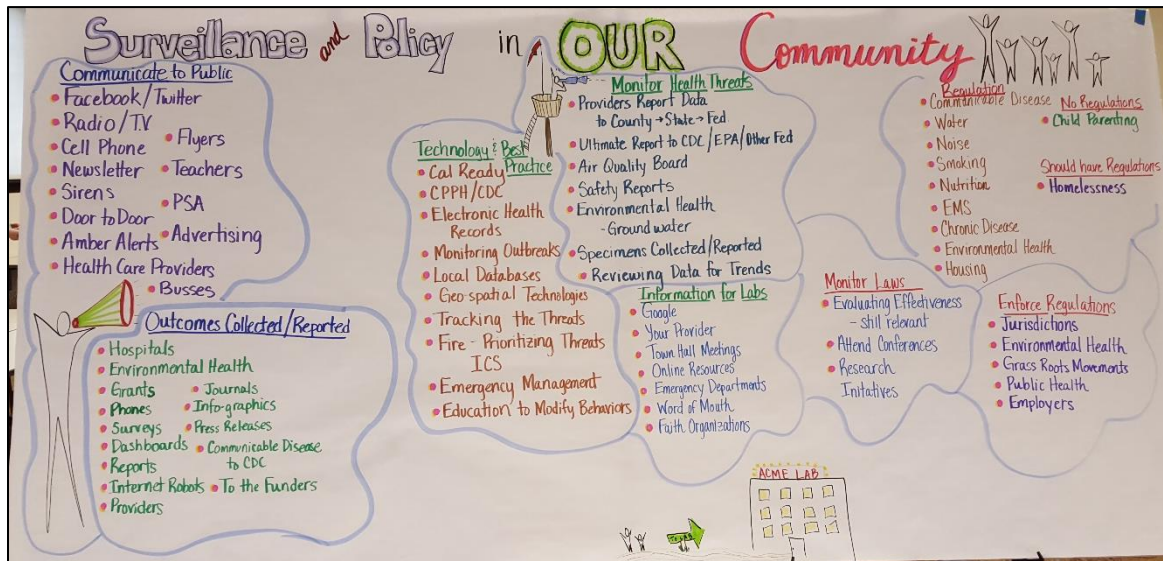 Surveillance and Policy in OUR Community
Communicate to Public
• Facebook/Twitter
• Radio/T.V
• Cell Phone
• Newsletter
• Sirens
• Door to Door
• Amber Alerts
• Health Care Providers
• Busses
• Flyers
• Teachers
• PSA
• Advertising
Outcomes Collected/Reported
• Hospitals
• Environmental Health
• Grants
• Phones
• Surveys
• Dashboards
• Reports
• Internet Robots
• Providers
• Journals
• Info-graphics
• Press Releases
• Communicable Disease
to CDC
• To the Funders
Technology & Best
Practice
• Cal Ready
• CPPH/CDC
• Electronic Health
Records
• Monitoring Outbreaks
• Local Databases
• Geo-spatial Technologies
• Tracking the Threats
• Fire - Prioritizing Threats
ICS
• Emergency Management
• Education to Modify Behaviors
Monitor Health Threats
• Providers Report Data
to County → State → Fed.
• Ultimate Report to CDC/EPA/Other Fed
• Air Quality Board
• Safety Reports
• Environmental Health
- Ground water
• Specimens Collected/Reported
• Reviewing Data for Trends
Information for Labs
• Google
• Your Provider
• Town Hall Meetings
• Online Resources
• Emergency Departments
• Word of Mouth
• Faith Organizations
Regulation
• Communicable Disease
• Water
• Noise
• Smoking
• Nutrition
• EMS
• Chronic Disease
• Environmental Health
• Housing
No Regulations
• Child Parenting
Should have Regulations
• Homelessness
Monitor Laws
• Evaluating Effectiveness
- still relevant
• Attend Conferences
• Research
Initatives
Enforce Regulations
• Jurisdictions
• Environmental Health
• Grass Roots Movements
• Public Health
• Employers
ACME LAB